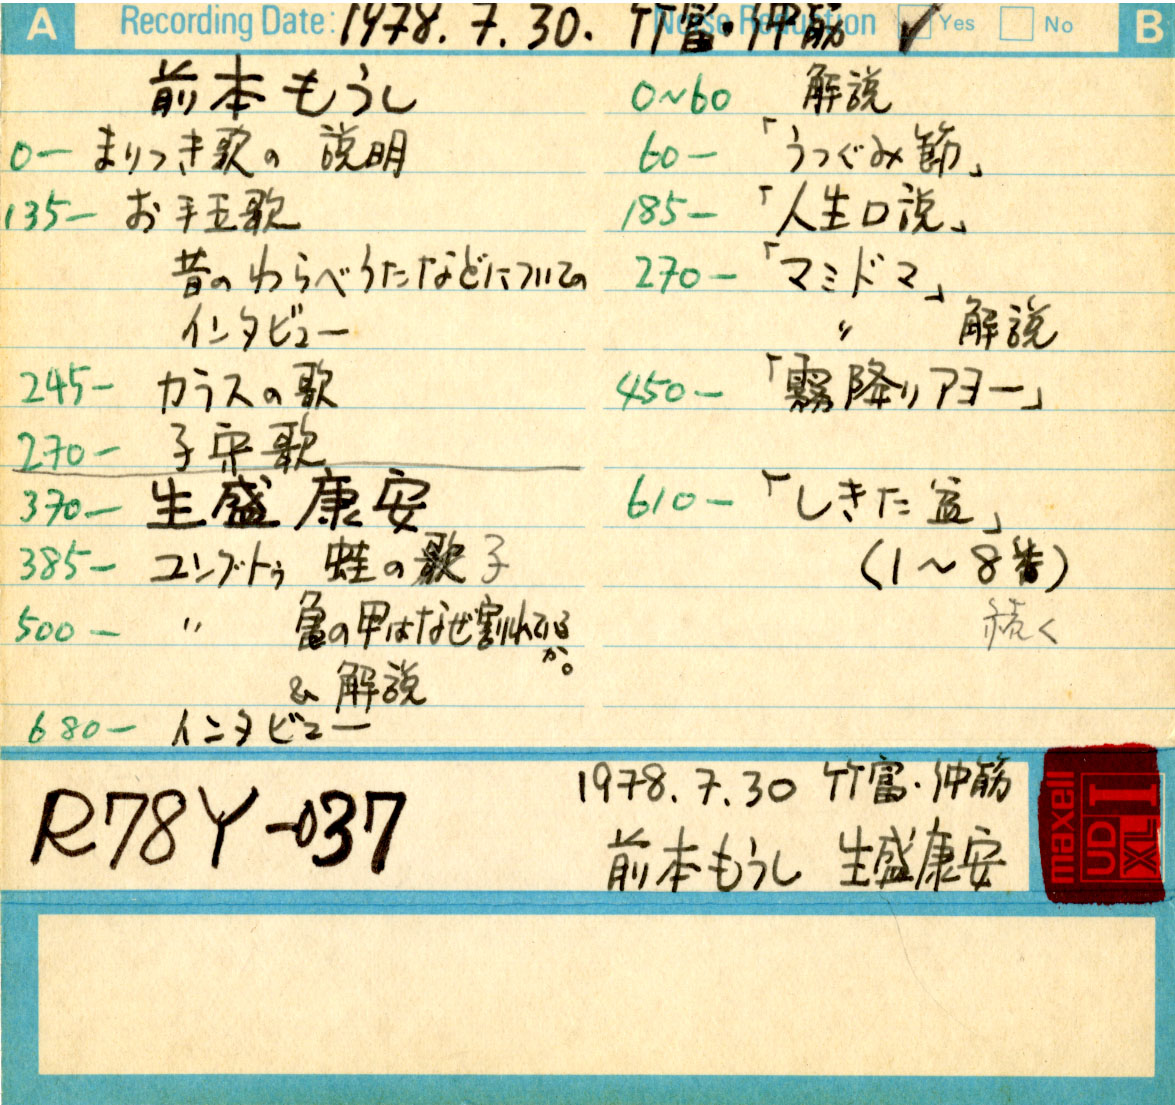 A Recording Date: 1978.7.30. 竹富・仲筋 Noise Reduction ✓ Yes No B
前本もうし
0— まりつき歌の 説明
135— お手玉歌
昔のわらべうたなどについての
インタビュー
245— カラスの歌
270— 子守歌
370— 生盛康安
385— ユングトゥ 蛙の歌子
500— 〃 亀の甲はなぜ割れているか。
& 解説
680— インタビュー
0~60 解説
60— 「うつぐみ節」
185— 「人生口説」
270— 「マミドマ」
〃 解説
450— 「霧降りアヨー」
610— 「しきた盆」
(1~8番)
続く
R78Y-037
1978.7.30 竹富・仲筋
前本もうし 生盛康安
maxell UD XL I